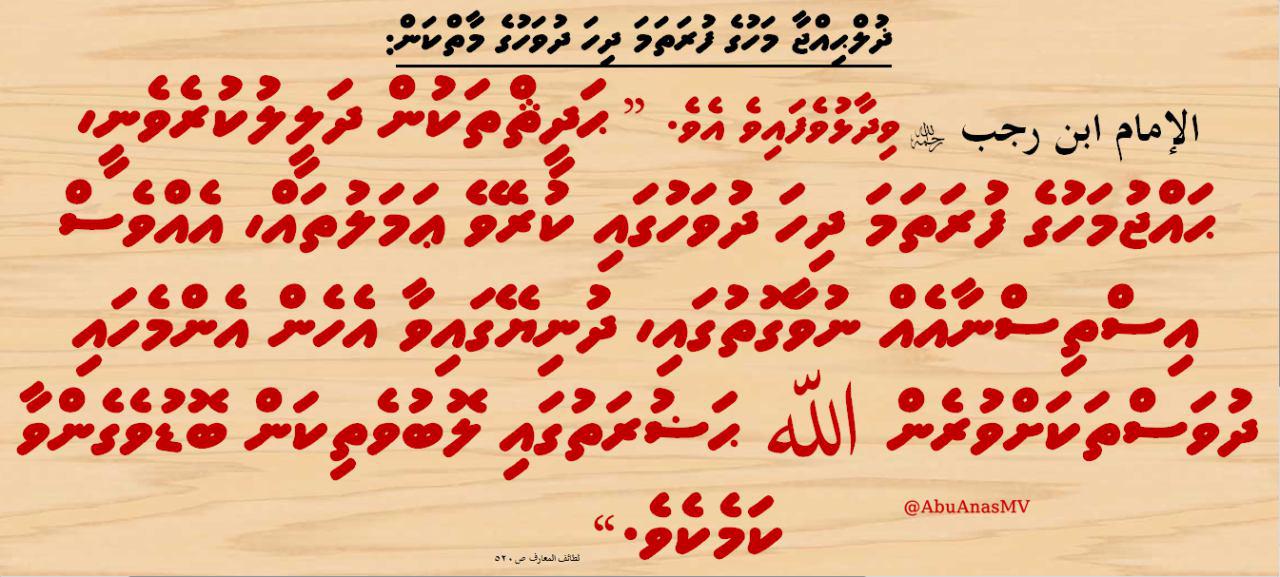 ޛުލްޙިއްޖާ މަހުގެ ފުރަތަމަ ދިހަ ދުވަހުގެ މާތްކަން:
الإمام ابن رجب رحمه الله ވިދާޅުވެފައިވެ އެވެ. ” ޙަދީޘްތަކުން ދަލީލުކުރެވެނީ،
ޙައްޖުމަހުގެ ފުރަތަމަ ދިހަ ދުވަހުގައި ކުރެވޭ ޢަމަލުތައް، އެއްވެސް
އިސްތިސްނާއެއް ނުވާގޮތުގައި، ދުނިޔޭގައިވާ އެހެން އެންމެހައި
ދުވަސްތަކަށްވުރެން الله ޙަޟުރަތުގައި ލޮބުވެތިކަން ބޮޑުވެގެންވާ
ކަމެކެވެ.“
@AbuAnasMV
لطائف المعارف ص ٥٢٠